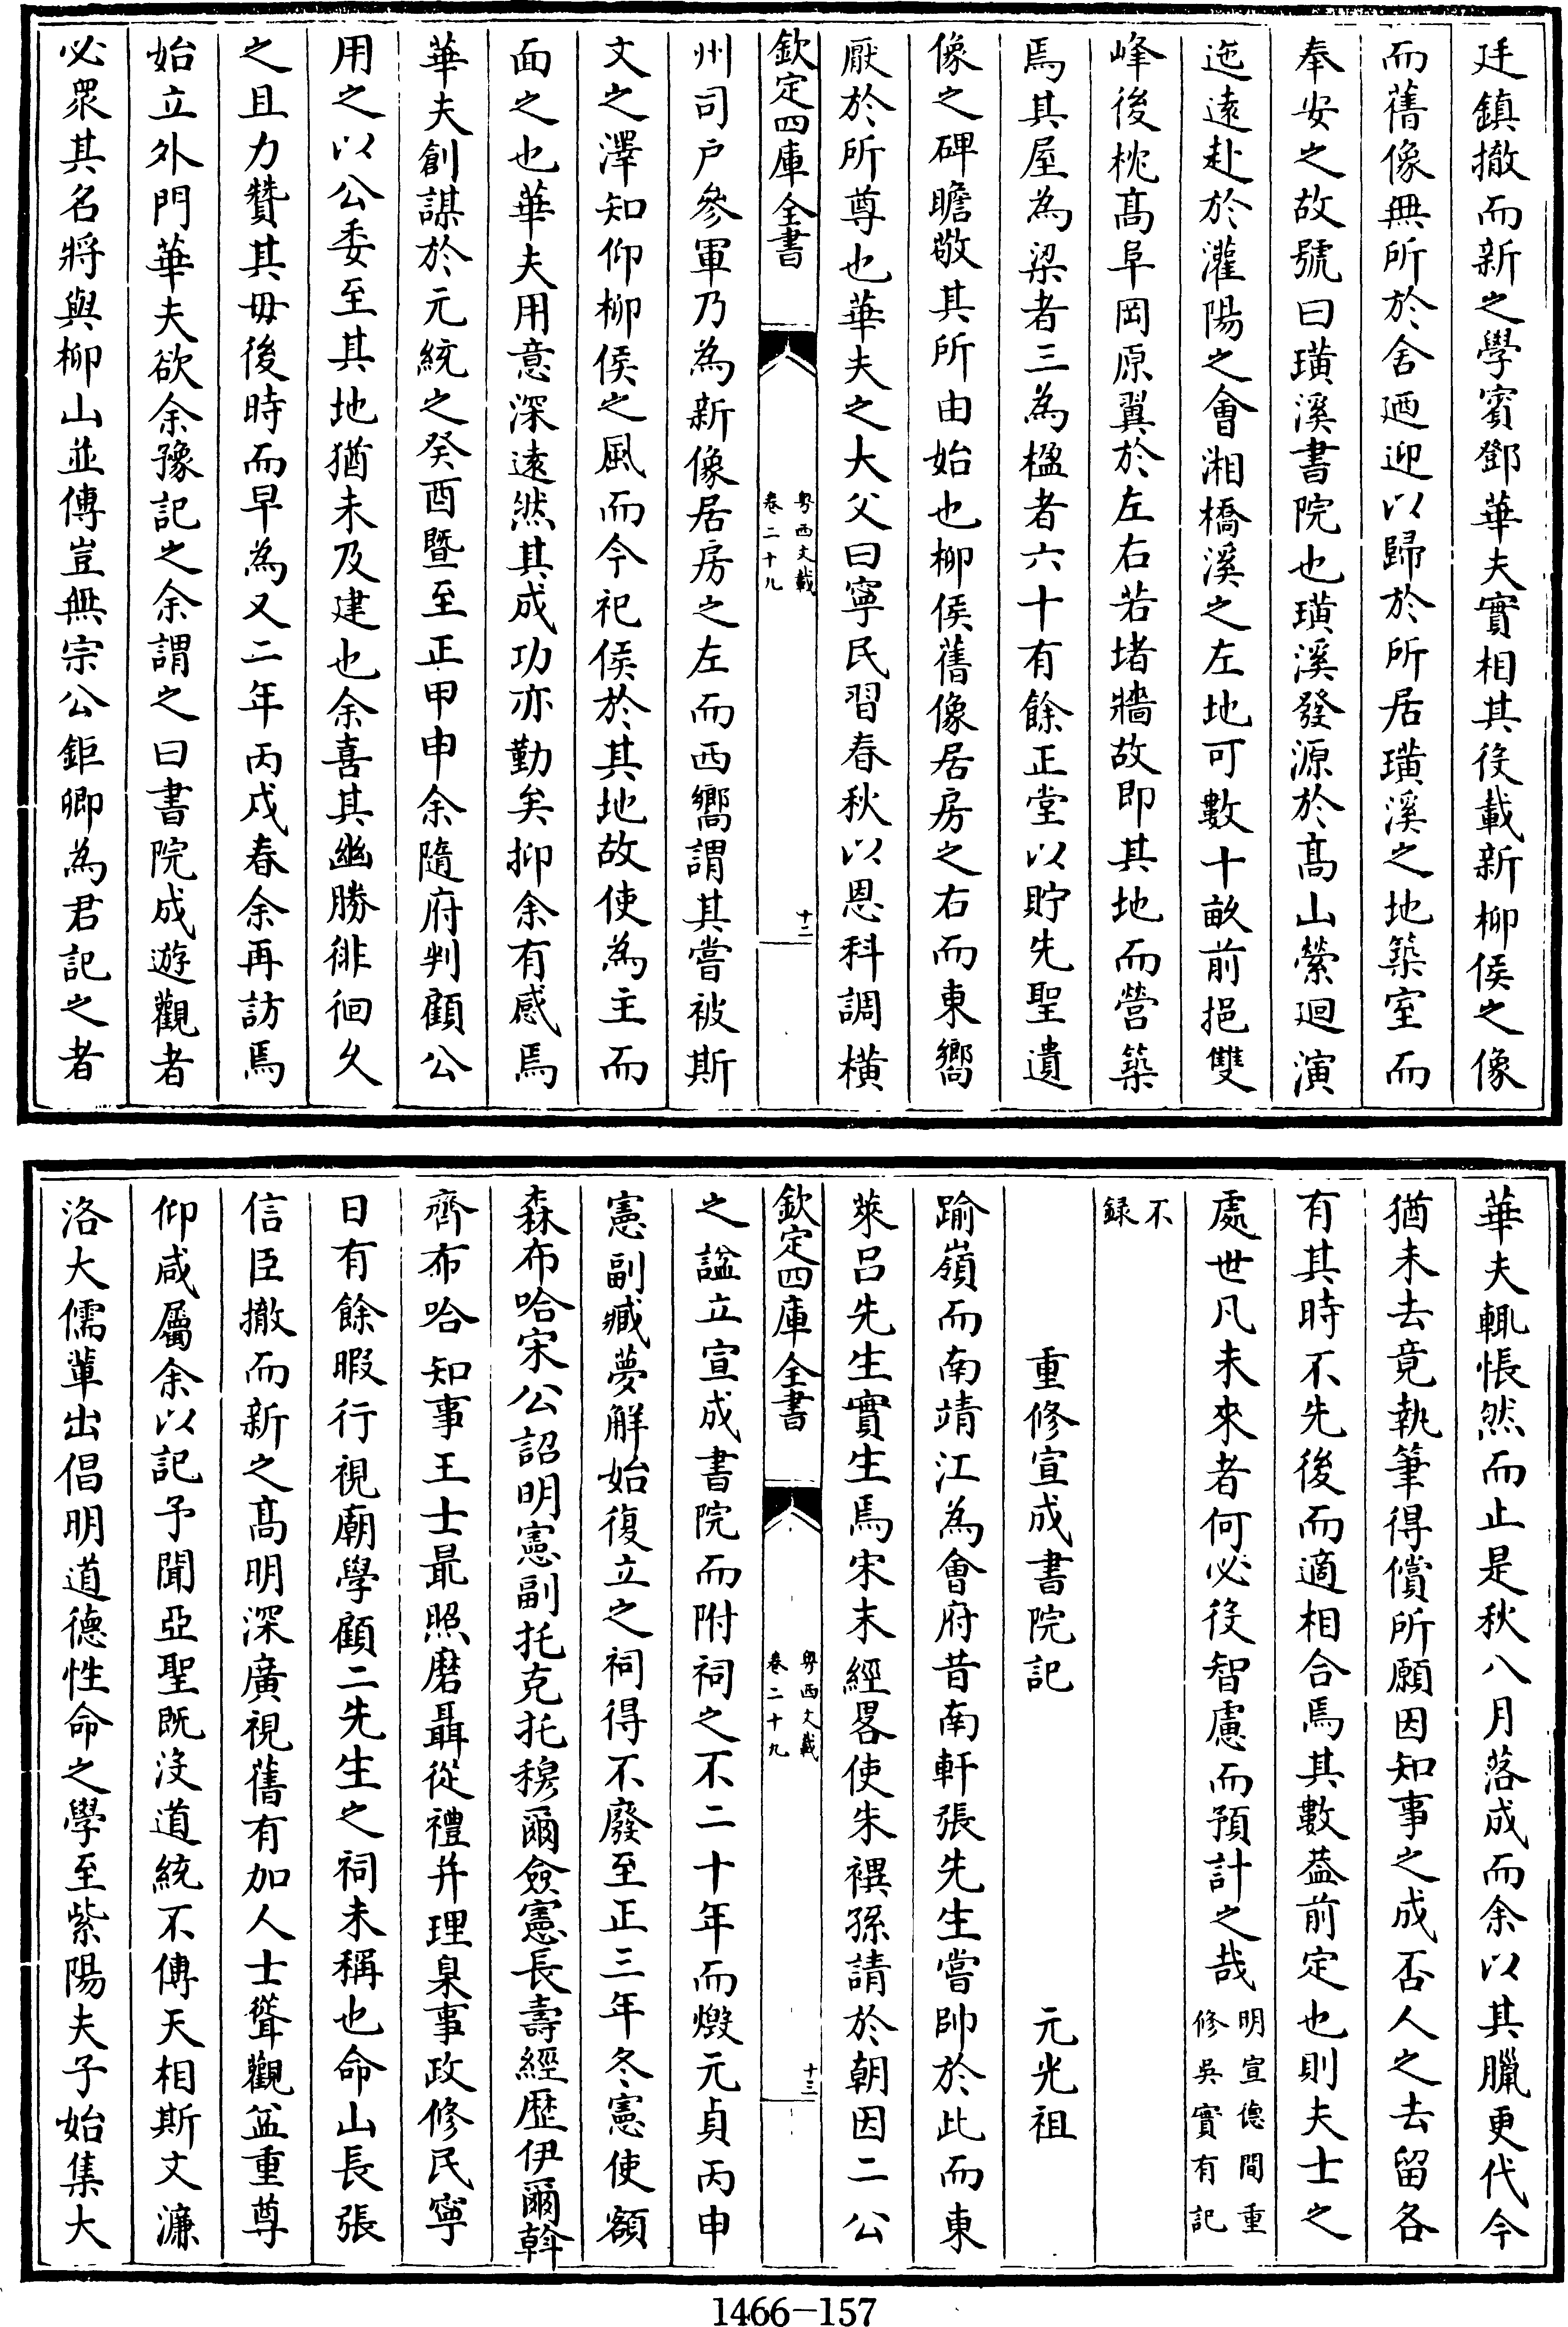 廷鎮撤而新之學賓鄧華夫實相其役載新柳侯之像
而舊像無所於舍廼迎以歸於所居璜溪之地築室而
奉安之故號曰璜溪書院也璜溪發源於髙山縈迴演
迤逺赴於灌陽之會湘橋溪之左地可數十畝前挹雙
峰後枕髙阜岡原翼於左右若堵牆故即其地而營築
焉其屋為梁者三為楹者六十有餘正堂以貯先聖遺
像之碑瞻敬其所由始也柳侯舊像居房之右而東嚮
厭於所尊也華夫之大父曰寧民習春秋以恩科調橫
欽定四庫全書
粤西文載
卷二十九
十二
州司户參軍乃為新像居房之左而西嚮謂其嘗被斯
文之澤知仰柳侯之風而今祀侯於其地故使為主而
面之也華夫用意深逺然其成功亦勤矣抑余有感焉
華夫創謀於元統之癸酉暨至正甲申余隨府判顧公
用之以公委至其地猶未及建也余喜其幽勝徘徊久
之且力贊其毋後時而早為又二年丙戌春余再訪焉
始立外門華夫欲余豫記之余謂之曰書院成遊觀者
必衆其名將與柳山並傳豈無宗公鉅卿為君記之者
華夫輒悵然而止是秋八月落成而余以其臘更代今
猶未去竟執筆得償所願因知事之成否人之去留各
有其時不先後而適相合焉其數葢前定也則夫士之
處世凡未來者何必役智慮而預計之哉
明宣德間重
修吳實有記
不
録
重修宣成書院記
元光祖
踰嶺而南靖江為會府昔南軒張先生嘗帥於此而東
萊吕先生實生焉宋末經畧使朱禩孫請於朝因二公
欽定四庫全書
粤西文載
卷二十九
十三
之諡立宣成書院而附祠之不二十年而燬元貞丙申
憲副臧夢解始復立之祠得不廢至正三年冬憲使額
森布哈宋公詔明憲副托克托穆爾僉憲長壽經歴伊爾斡
齊布哈知事王士最照磨聶從禮并理臬事政修民寧
日有餘暇行視廟學顧二先生之祠未稱也命山長張
信臣撤而新之髙明深廣視舊有加人士聳觀益重尊
仰咸屬余以記予聞亞聖既沒道統不傳天相斯文濂
洛大儒輩出倡明道德性命之學至紫陽夫子始集大
1466-157